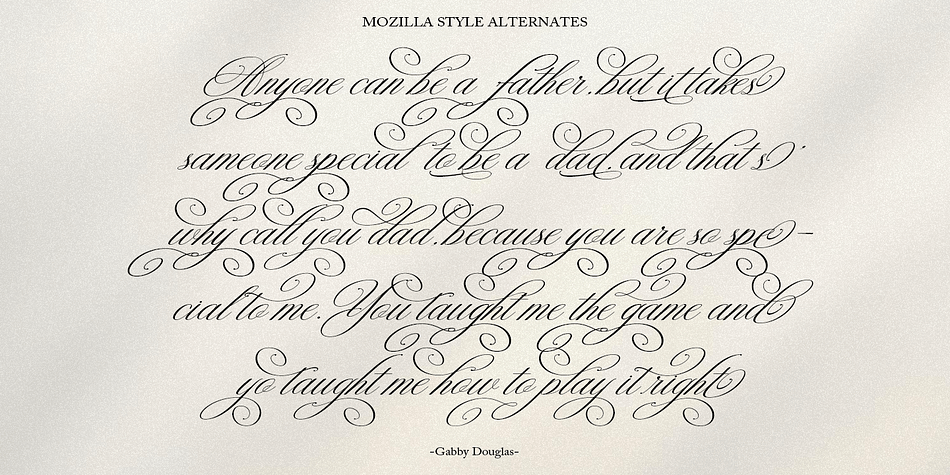 MOZILLA STYLE ALTERNATES
Anyone can be a father. but it takes
sameone special to be a dad. and that s'
why call you dad. because you are so spe-
cial to me. You taught me the game and
yo taught me how to play it right
-Gabby Douglas-